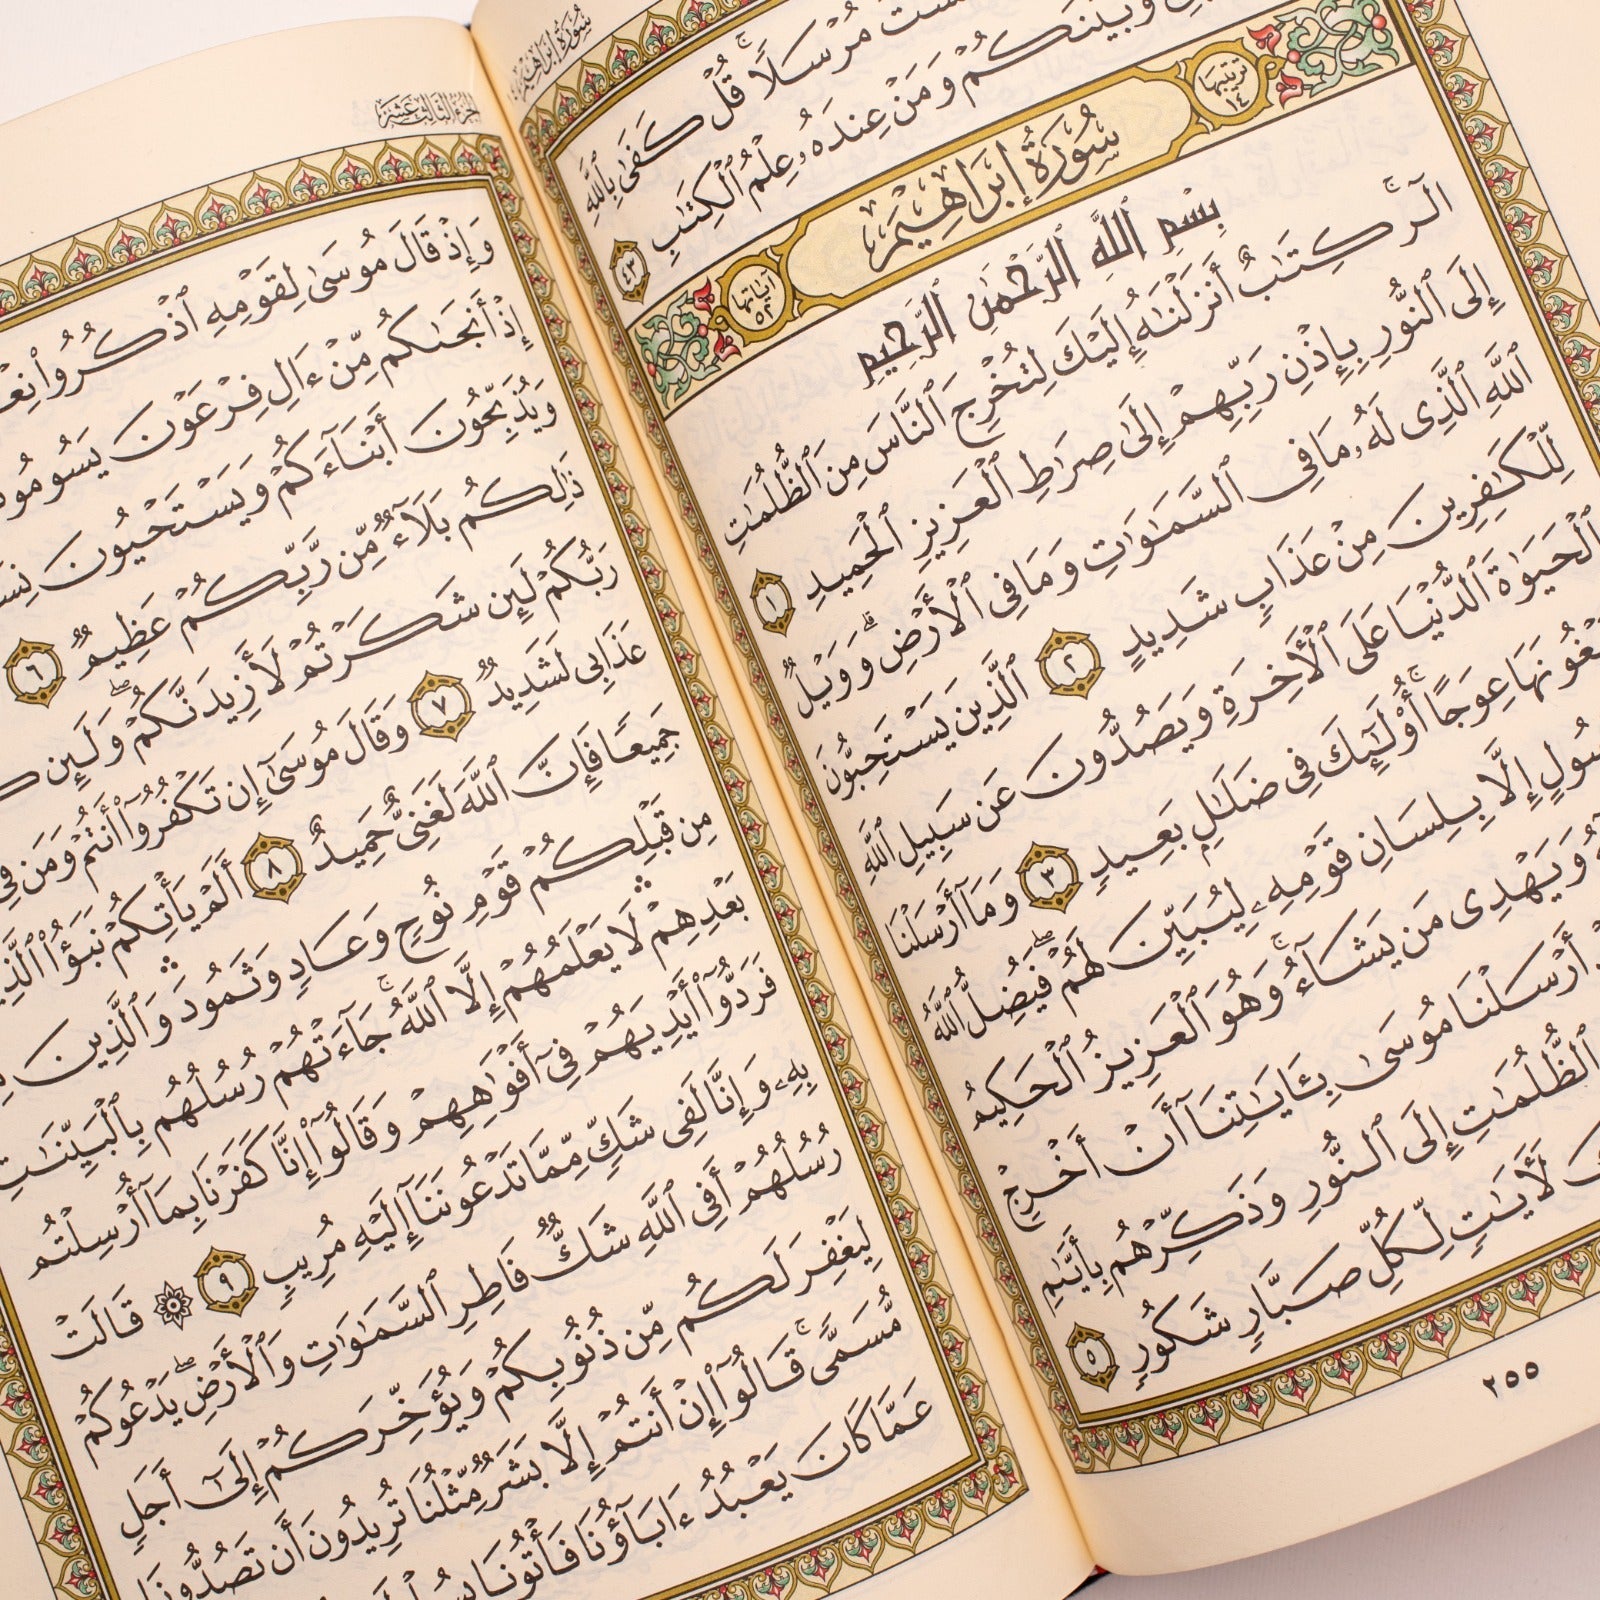 سُورَةُ إِبْرَاهِيمَ
لَسْتَ مُرْسَلًا ۚ قُلْ كَفَىٰ بِٱللَّهِ
وَبَيْنَكُمْ وَمَنْ عِندَهُۥ عِلْمُ ٱلْكِتَٰبِ ٤٣
ترتيبها ١٤
سُورَةُ إِبْرَاهِيمَ
آياتها ٥٢
بِسْمِ ٱللَّهِ ٱلرَّحْمَٰنِ ٱلرَّحِيمِ
الٓر ۚ كِتَٰبٌ أَنزَلْنَٰهُ إِلَيْكَ لِتُخْرِجَ ٱلنَّاسَ مِنَ ٱلظُّلُمَٰتِ
إِلَى ٱلنُّورِ بِإِذْنِ رَبِّهِمْ إِلَىٰ صِرَٰطِ ٱلْعَزِيزِ ٱلْحَمِيدِ ١
ٱللَّهِ ٱلَّذِى لَهُۥ مَا فِى ٱلسَّمَٰوَٰتِ وَمَا فِى ٱلْأَرْضِ ۗ وَوَيْلٌ
لِّلْكَٰفِرِينَ مِنْ عَذَابٍ شَدِيدٍ ٢ ٱلَّذِينَ يَسْتَحِبُّونَ
ٱلْحَيَوٰةَ ٱلدُّنْيَا عَلَى ٱلْأَخِرَةِ وَيَصُدُّونَ عَن سَبِيلِ ٱللَّهِ
غُونَهَا عِوَجًا ۚ أُو۟لَٰٓئِكَ فِى ضَلَٰلٍۭ بَعِيدٍ ٣ وَمَآ أَرْسَلْنَا
سُولٍ إِلَّا بِلِسَانِ قَوْمِهِۦ لِيُبَيِّنَ لَهُمْ ۖ فَيُضِلُّ ٱللَّهُ
وَيَهْدِى مَن يَشَآءُ ۚ وَهُوَ ٱلْعَزِيزُ ٱلْحَكِيمُ
أَرْسَلْنَا مُوسَىٰ بِـَٔايَٰتِنَآ أَنْ أَخْرِجْ
ٱلظُّلُمَٰتِ إِلَى ٱلنُّورِ وَذَكِّرْهُم بِأَيَّىٰمِ
لَأَيَٰتٍ لِّكُلِّ صَبَّارٍ شَكُورٍ ٥
٢٥٥
الجزء الثالث عشر
وَإِذْ قَالَ مُوسَىٰ لِقَوْمِهِ ٱذْكُرُوا۟
إِذْ أَنجَىٰكُم مِّنْ ءَالِ فِرْعَوْنَ يَسُومُو
وَيُذَبِّحُونَ أَبْنَآءَكُمْ وَيَسْتَحْيُونَ
ذَٰلِكُم بَلَآءٌ مِّن رَّبِّكُمْ عَظِيمٌ ٦
رَبُّكُمْ لَئِن شَكَرْتُمْ لَأَزِيدَنَّكُمْ ۖ وَلَئِن
عَذَابِى لَشَدِيدٌ ٧ وَقَالَ مُوسَىٰٓ إِن تَكْفُرُوٓا۟ أَنتُمْ وَمَن فِى
جَمِيعًا فَإِنَّ ٱللَّهَ لَغَنِىٌّ حَمِيدٌ ٨ أَلَمْ يَأْتِكُمْ نَبَؤُا۟ ٱلَّذِي
مِن قَبْلِكُمْ قَوْمِ نُوحٍ وَعَادٍ وَثَمُودَ ۛ وَٱلَّذِينَ
بَعْدِهِمْ ۛ لَا يَعْلَمُهُمْ إِلَّا ٱللَّهُ ۚ جَآءَتْهُمْ رُسُلُهُم بِٱلْبَيِّنَٰتِ
فَرَدُّوٓا۟ أَيْدِيَهُمْ فِىٓ أَفْوَٰهِهِمْ وَقَالُوٓا۟ إِنَّا كَفَرْنَا بِمَآ أُرْسِلْتُم
بِهِۦ وَإِنَّا لَفِى شَكٍّ مِّمَّا تَدْعُونَنَآ إِلَيْهِ مُرِيبٍ ٩ ۞ قَالَتْ
رُسُلُهُمْ أَفِى ٱللَّهِ شَكٌّ فَاطِرِ ٱلسَّمَٰوَٰتِ وَٱلْأَرْضِ ۖ يَدْعُوكُمْ
لِيَغْفِرَ لَكُم مِّن ذُنُوبِكُمْ وَيُؤَخِّرَكُمْ إِلَىٰٓ أَجَلٍ
مُّسَمًّى ۚ قَالُوٓا۟ إِنْ أَنتُمْ إِلَّا بَشَرٌ مِّثْلُنَا تُرِيدُونَ أَن تَصُدُّونَا
عَمَّا كَانَ يَعْبُدُ ءَابَآؤُنَا فَأْتُونَا